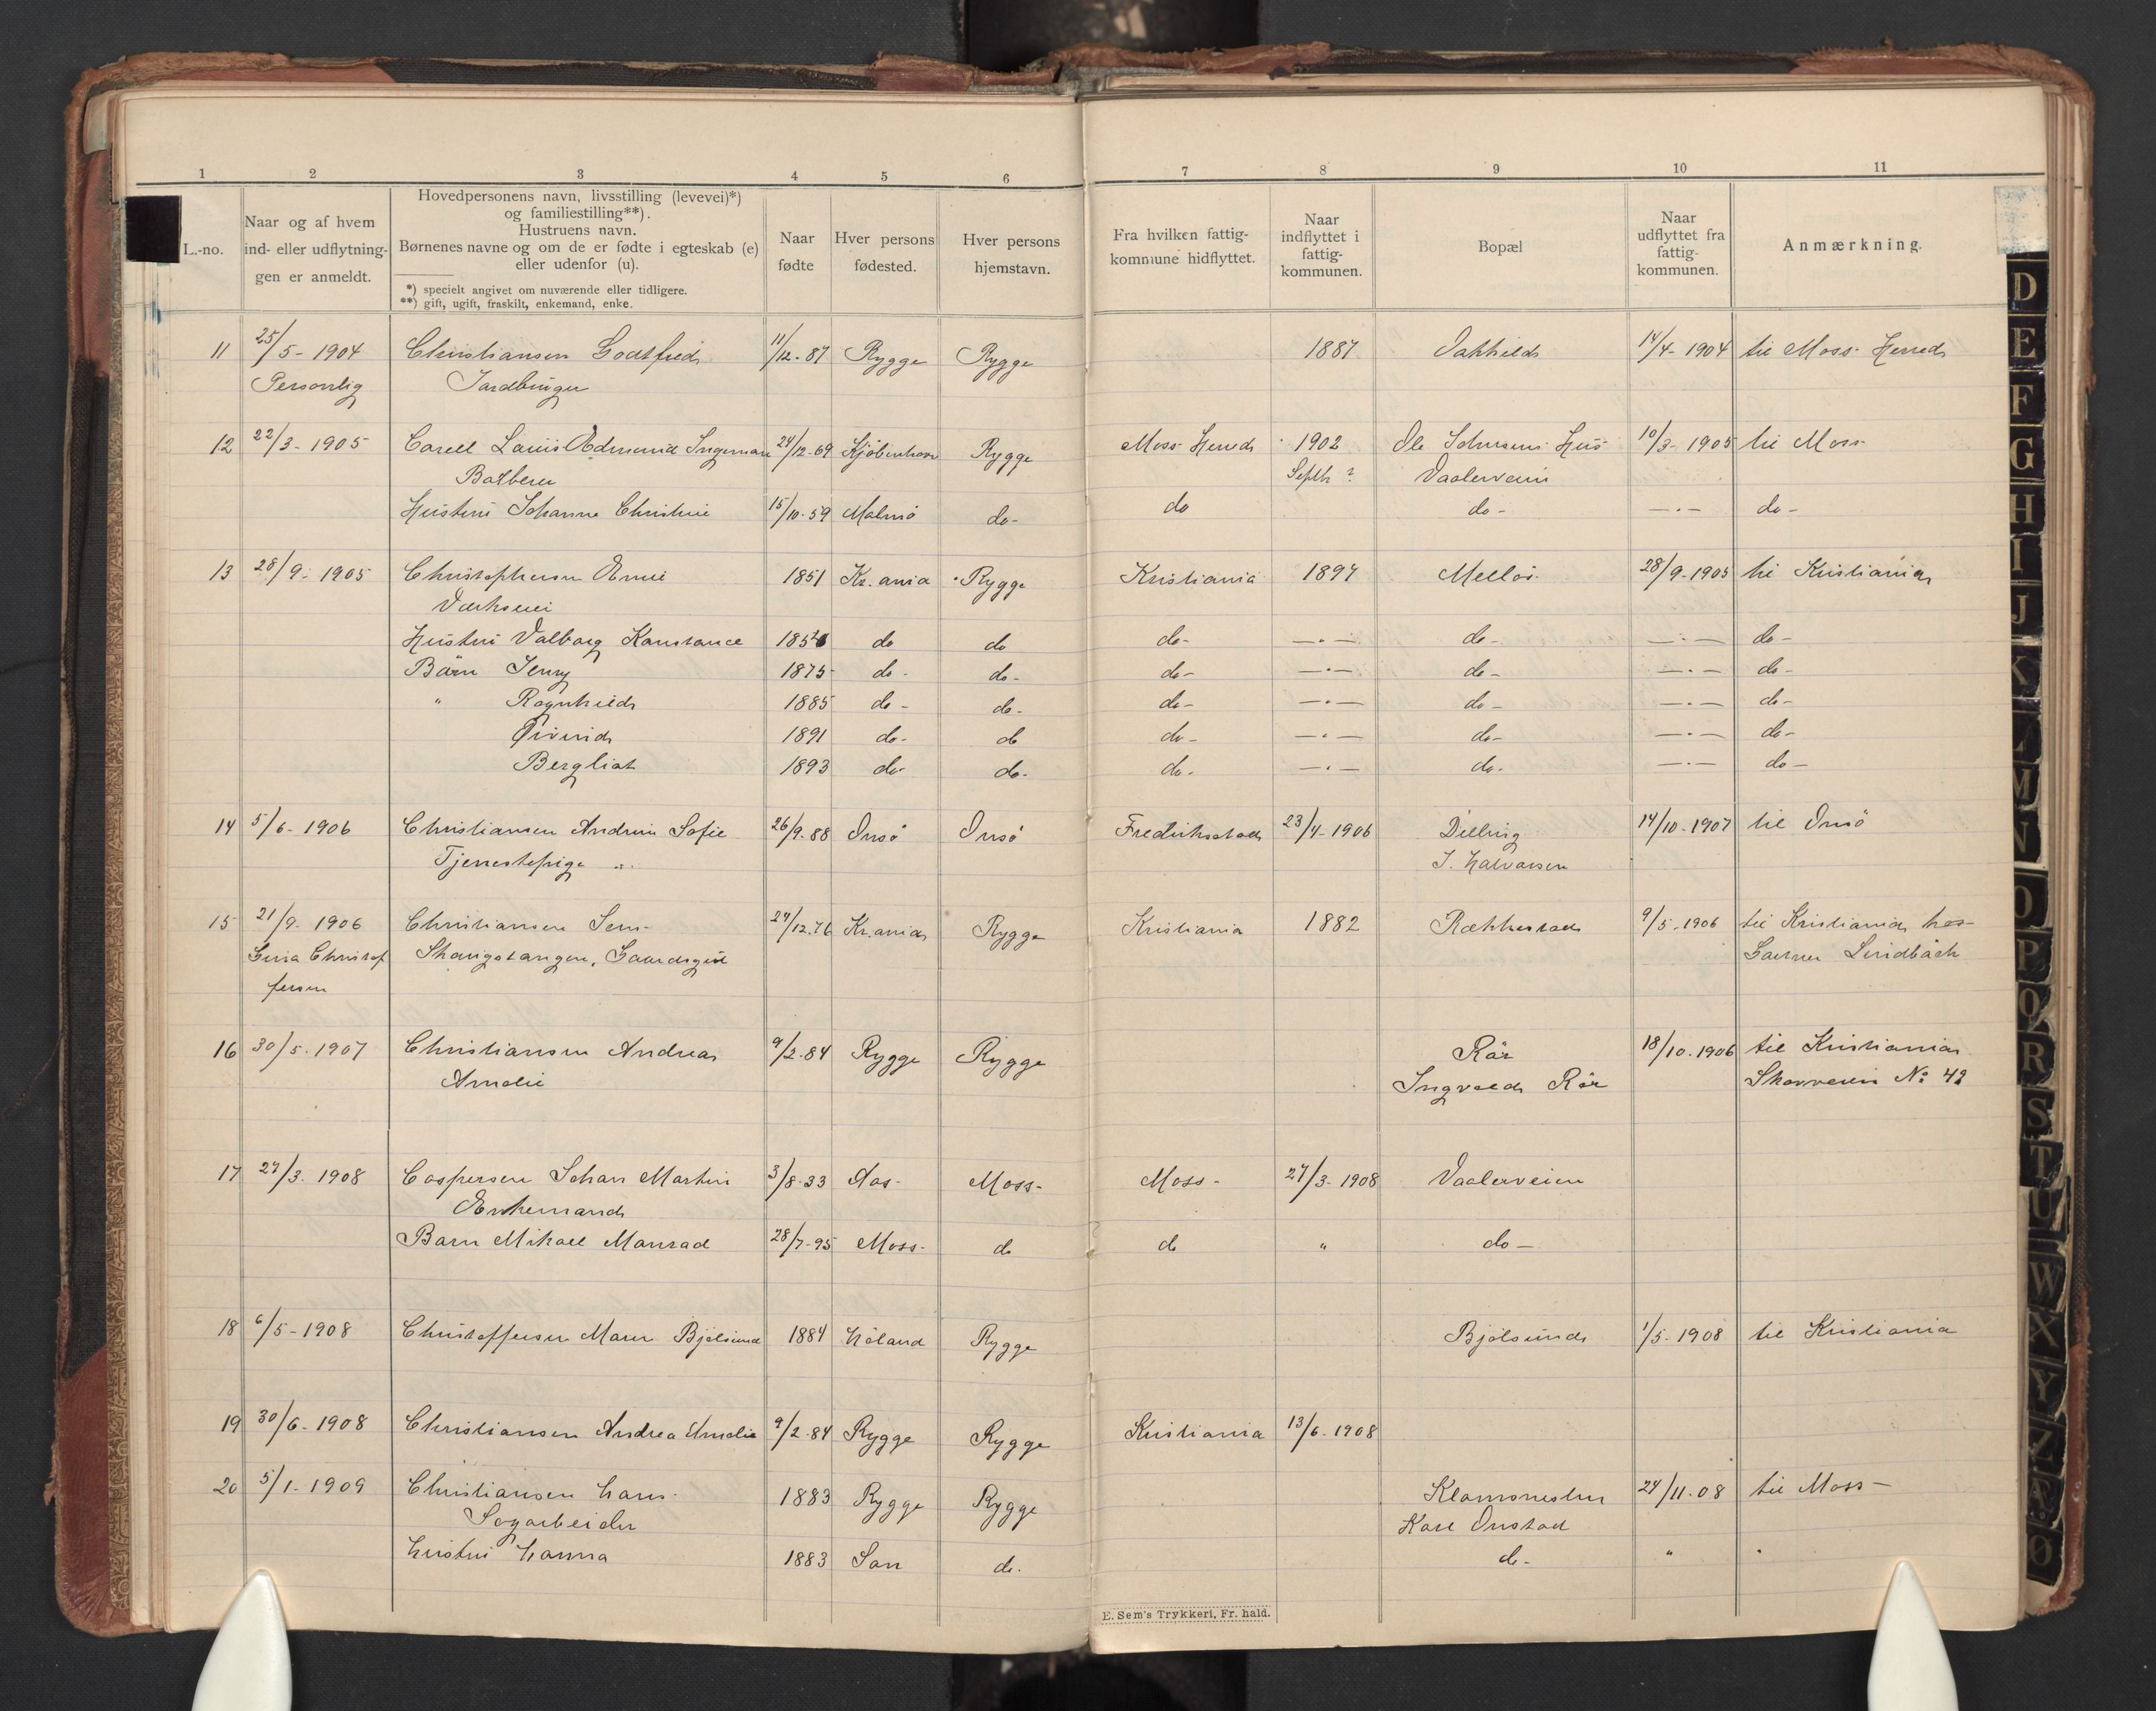 1 2 3 4 5 6 7 8 9 10 11
L.-no.
Naar og af hvem
ind- eller udflytnin-
gen er anmeldt.
Hovedpersonens navn, livsstilling (levevei)*)
og familiestilling**).
Hustruens navn.
Børnenes navne og om de er fødte i egteskab (e)
eller udenfor (u).
*) specielt angivet om nuværende eller tidligere.
**) gift, ugift, fraskilt, enkemand, enke.
Naar
fødte
Hver persons
fødested.
Hver persons
hjemstavn.
Fra hvilken fattig-
kommune hidflyttet.
Naar
indflyttet i
fattig-
kommunen.
Bopæl
Naar
udflyttet fra
fattig-
kommunen.
Anmærkning.
11 25/5-1904 Christiansen Godtfred 11/12-87 Rygge Rygge 1887 14/4-1904 til Moss Herred
Personlig Jordbruger
12 22/3-1905 Carell Louis Edmund Ingeman 24/12-69 Kjöbenhavn Rygge Moss Herred 1902 Ole Johnsens Hus 10/3-1905 til Moss
Barberer Septbr ? Vaalerveien
Hustru Johanne Christine 15/10-59 Malmö do- do do- —·— do-
13 28/9-1905 Christophersen Emil 1851 Kr.ania Rygge Kristiania 1894 Mellös 28/9-1905 til Kristiania
Værkseier
Hustru Valborg Konstance do do do- —·— do- —·— do-
Börn Jenny 1875 do- do- do- —·— do- —·— do-
" Ragnhild 1885 do- do- do- —·— do- —·— do-
Öivind 1891 do- do do- —·— do- —·— do-
Bergliot 1893 do- do- do- —·— do- —·— do-
14 5/6-1906 Christiansen Andrine Sofie 26/9-88 Onsö Onsö Fredrikstad 23/4-1906 Dilling 14/10-1907 til Onsö
Tjenestepige J. Halvorsen
15 21/9-1906 Christiansen Jens 27/12-76 Kr.ania Rygge Kristiania 1882 Rakkestad 9/5-1906 til Kristiania hos
Christof Gaardsgut Lindbäck
fersen
16 30/5-1907 Christiansen Andrea 9/2-84 Rygge Rygge Rör 18/10-1906 til Kristiania
Amalie Ingvald Rör Skovveien No 42
17 27/3-1908 Caspersen Johan Martin 3/8-33 Aas- Moss- Moss- 27/3-1908 Vaalerveien
Enkemand
Barn Mikael Manrad 28/7-95 Moss- do do " do-
18 6/5-1908 Christoffersen Maren Bjölsund 1884 Höland Rygge Bjölsund 1/5-1908 til Kristiania
19 30/6-1908 Christiansen Andrea Amalie 9/2-84 Rygge Rygge Kristiania 13/6-1908
20 5/1-1909 Christiansen Hans 1883 Rygge Rygge 24/11-08 til Moss-
Sagarbeider Karl Onstad
Hustru Hanna 1883 Son do. do- " "
E. Sem's Trykkeri, Fr. hald.
D
E
F
G
H
I
J
K
L
M
N
O
P
Q
R
S
T
U
W
X
Y
Z
Æ
Ø